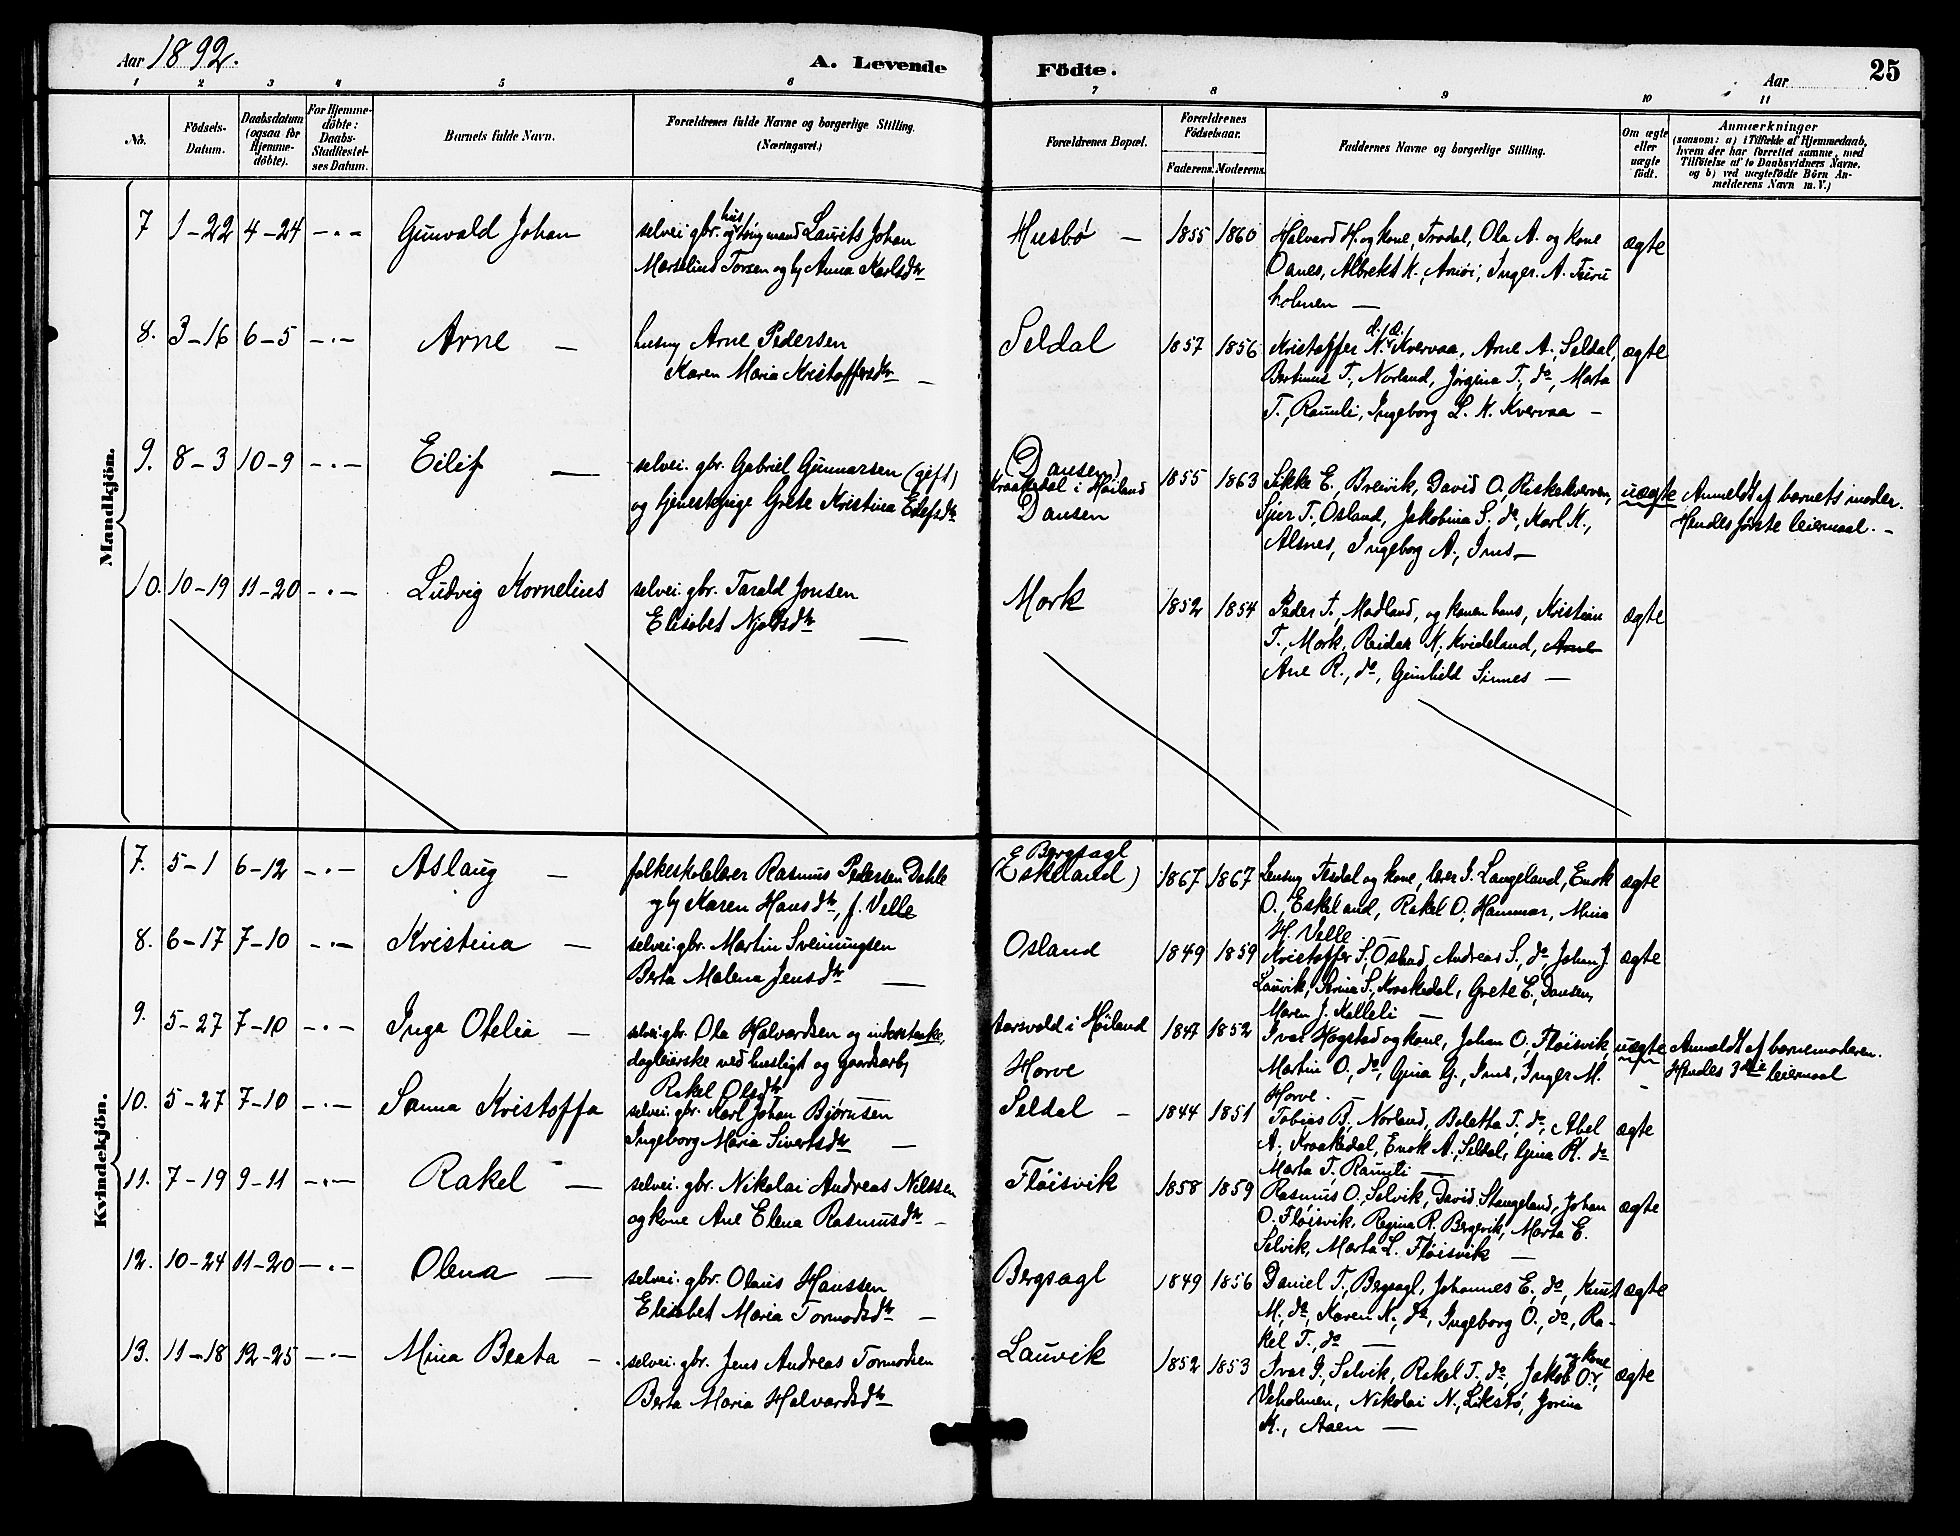 Aar 1892.
A. Levende
Födte.
Aar
25
1 2 3 4 5 6 7 8 9 10 11
No.
Födsels-
Datum.
Daabsdatum
(ogsaa for
Hjemme-
döbte).
For Hjemme-
döbte:
Daabs-
Stadfæstel-
ses Datum.
Barnets fulde Navn.
Forældrenes fulde Navne og borgerlige Stilling.
(Næringsvei.)
Forældrenes Bopæl.
Forældrenes
Födselsaar.
Faderens. Moderens.
Faddernes Navne og borgerlige Stilling.
Om ægte
eller
uægte
födt.
Anmærkninger
(saasom: a) i Tilfælde af Hjemmedaab,
hvem der har forrettet samme, med
Tilföielse af to Daabsvidners Navne,
og b) ved uægtefödte Börn An-
melderens Navn m. V.)
Mandkjön.
7 1-22 4-24 -"- Gunvald Johan
selvei. gbr. og hus tøming mand Laurits Johan
Marselius Torsen og hj Anna Karlsdtr
Husbø -
1855 1860
Halvard H. og kone, Frodal, Ola A. og kone
Oanes, Albrekt K. Arnøi, Inger A. Furu
holmen -
ægte
8. 3-16 6-5 -"- Arne -
husmg Arne Pedersen
Karen Maria Kristoffersdtr -
Seldal
1857 1856
Kristoffer K. Kvervaa, Arne A., Seldal,
Bertinus T., Norland, Jørgina T., do, Marta
T., Raunli, Ingeborg L. K. Kvervaa -
ægte
9. 8-3 10-9 -"- Eilif -
selvei. gbr. Gabriel Gunnarsen (gift)
og tjenestepige Grete Kristina Eilefsdtr
(Dansen)
Kraakedal i Høiland
Dansen
1855 1863
Sikke E., Breivik, David O., Riskekverven,
Sjur T., Osland, Jakobina S., do, Karl K.,
Alsnes, Ingeborg A., Ims -
uægte
Anmeldt af barnets moder.
Hendes første leiermaal. -
10. 10-19 11-20 -"- Ludvig Kornelius
selvei. gbr. Tarald Jonsen
Elisabet Njeldsdtr -
Mork
1852 1854
Peder T., Madland, og konen hans, Kristian
T., Mork, Reidar K., Kvideland, Arne
Ane R., do, Gunhild Sinnes -
ægte
Kvindekjön.
7. 5-1 6-12 -"- Aslaug -
folkeskolelærer Rasmus Pedersen Dahle
og hj Karen Hansdtr, f. Velle
Bergsagl
(Eskeland)
1867 1867
Lensmg Tesdal og kone, lærer S. Langeland, Enok
O., Eskeland, Rakel O., Hammar, Mina
H. Velle.
ægte
8. 6-17 7-10 -"- Kristina -
selvei. gbr. Martin Sveinungsen
Berta Malena Jensdtr -
Osland
1849 1859
Kristoffer S., Oslad, Andreas S., do, Johan J.
Lauvik, Stina S., Kraakedal, Grete E., Dansen,
Maren J. Kalleli -
ægte
9. 5-27 7-10 -"- Inga Otelia -
selveigbr. Ola Halvardsen og inderstenke,
dagleierske ved husligt og gaardsarb,
Rakel Olsdtr
Aarsvold i Høiland
Horve
1847 1852
Ivar Høgstad og kone, Johan O., Fløisvik,
Martin O., do, Gina G., Ims, Inger M.
Horve.
uægte
Anmeldt af barnemoderen.
Hendes 3die leiermaal
10. 5-27 7-10 -"- Sanna Kristoffa
selvei. gbr. Karl Johan Bjørnsen
Ingeborg Maria Sivertsdtr -
Seldal -
1844 1851
Tobias B., Norland, Boletta T., do, Abel
A., Kraakedal, Enok A., Seldal, Gina K. do
Marta T., Raunli -
ægte
11. 7-19 9-11 -"- Rakel -
selvei. gbr. Nikolai Andreas Nilssen
og kone Ane Elena Rasmusdtr -
Fløisvik
1858 1859
Rasmus O., Selvik, David Stangeland, Johan
O. Fløisvik, Regina R. Bergevik, Marta E.
Selvik, Marta L. Fløisvik -
ægte
12. 10-24 11-20 -"- Olena -
selvei. gbr. Olaus Hanssen
Elisabet Maria Tormodsdtr -
Bergsagl
1849 1856
Daniel T., Bergsagl, Johannes E., do, Knut
M., do, Karen K., do, Ingeborg O., do, Ra-
kel T., do -
ægte
13. 11-18 12-25 -"- Mina Beata -
selvei. gbr. Jens Andreas Tormodsen
Berta Maria Halvardsdtr
Lauvik
1852 1853
Ivar I., Selvik, Rakel T., do, Jakob O. og kone,
Veholmen, Nikolai N., Likstø, Jorina
K., Aaen -
ægte